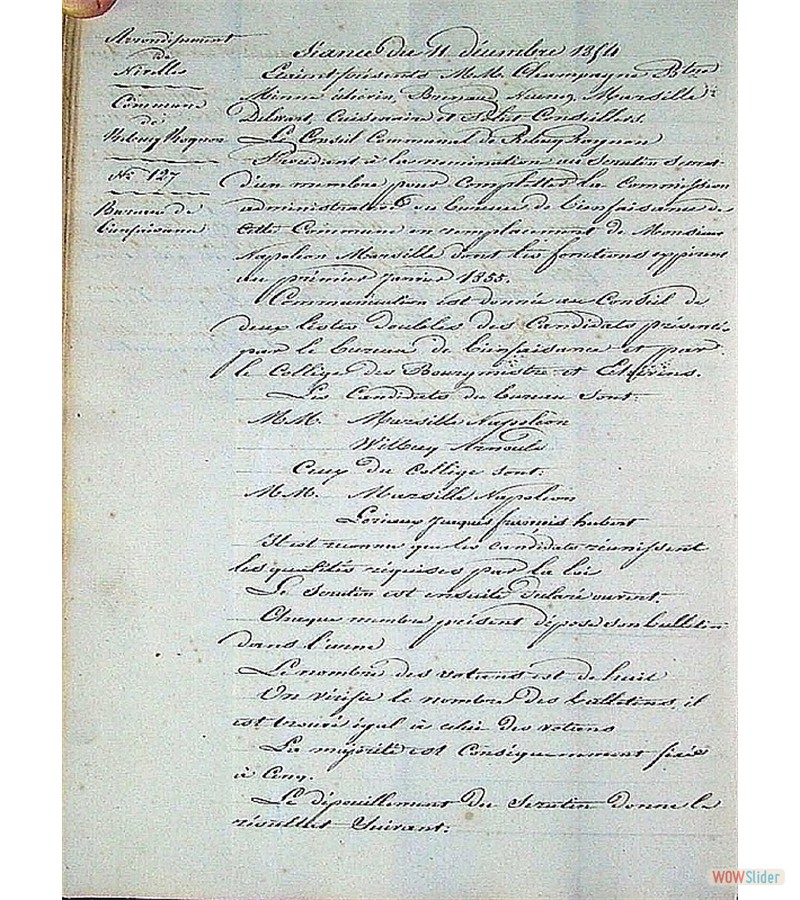 Arrondissement
de
Nivelles
Commune
de
Rebecq Rognon
N° 127
Bureau de
bienfaisance
Séance du 11 décembre 1854
Etaient présents M.M. Champagne Btre
Minne échevin, Marsille
Delwart, et Petit Conseillers.
Le Conseil Communal de Rebecq Rognon
Procédant à la nomination au scrutin secret
d'un membre pour completter la Commission
administrative du bureau de bienfaisance de
cette Commune en remplacement de Monsieur
Napoléon Marsille dont les fonctions expirent
au prémier Janvier 1855.
Communication est donnée au Conseil de
deux listes doubles des Candidats présentés
par le bureau de bienfaisance et par
le Collège des Bourgmestre et Echevins.
Les Candidats du bureau sont
M.M. Marsille Napoléon
Wilbecq Arnould
Ceux du Collège sont.
M.M. Marsille Napoléon
Lorieaux Jacques françois hubert
Il est reconnu que les candidats réunissent
les qualités réquises par la loi
Le Scrutin est ensuite déclaré ouvert.
Chaque membre présent dépose son bulletin
dans l'urne
Le nombre des votans est de huit
On vérifie le nombre des bulletins, il
est trouvé égal à celui des votans
La majorité est conséquemment fixée
à Cinq.
Le dépouillement du Scrutin donne le
résultat Suivant:
WOWSlider